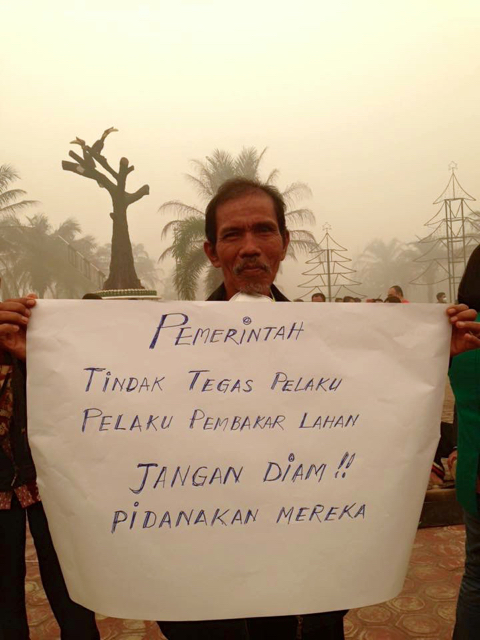 PEMERINTAH
TINDAK TEGAS PELAKU
PELAKU PEMBAKAR LAHAN
JANGAN DIAM !!
PIDANAKAN MEREKA